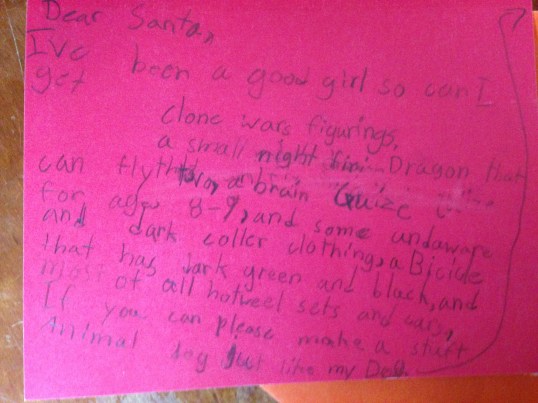 Dear Santa,
I've been a good girl so can I
get
clone wars figurings,
a small night Dragon that
can fly a brain Quize
for ages 8-9, and some undaware
and dark coller clothing, a Bicicle
that has dark green and black, and
most of all hotweel sets and cars,
If you can please make a stuft
Animal dog just like my Dog